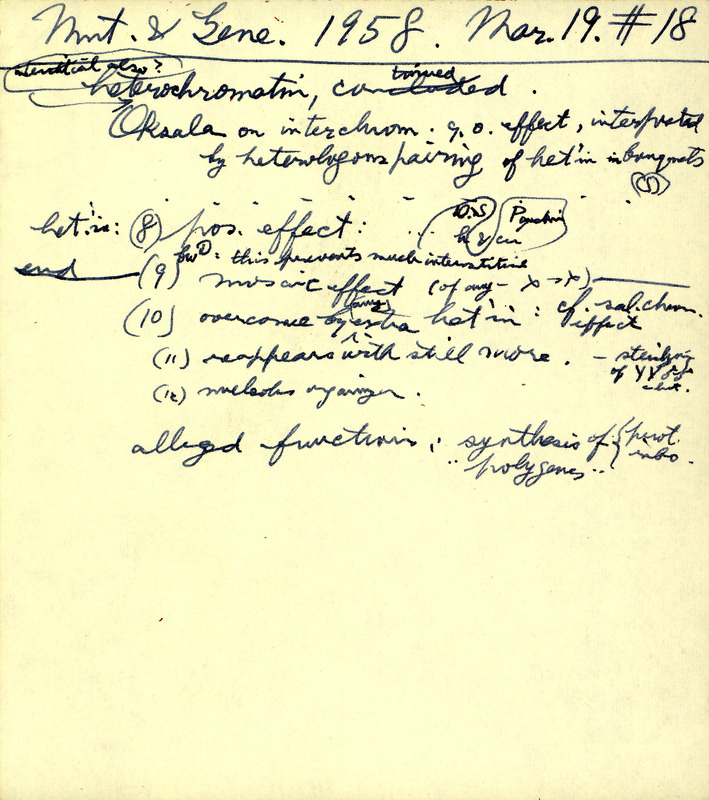 Mut. & Gene. 1958. Mar. 19. #18
interstitial also?
heterochromatin, continued.
Oksala on interchrom. q. o. effect, interpreted
by heterologous pairing of het'in in bouquets
het'in: (8) pos. effect: ...
(9) mosaic effect (of any - X → X)
bwD: this prevents much interstitial
end
(10) overcome by extra het'in: cf. sal. chrom. effect
(11) reappears with still more. - sterility
of YY ♂♂
(12) nucleolus organizer.
alleged functions: synthesis of
"polygenes"